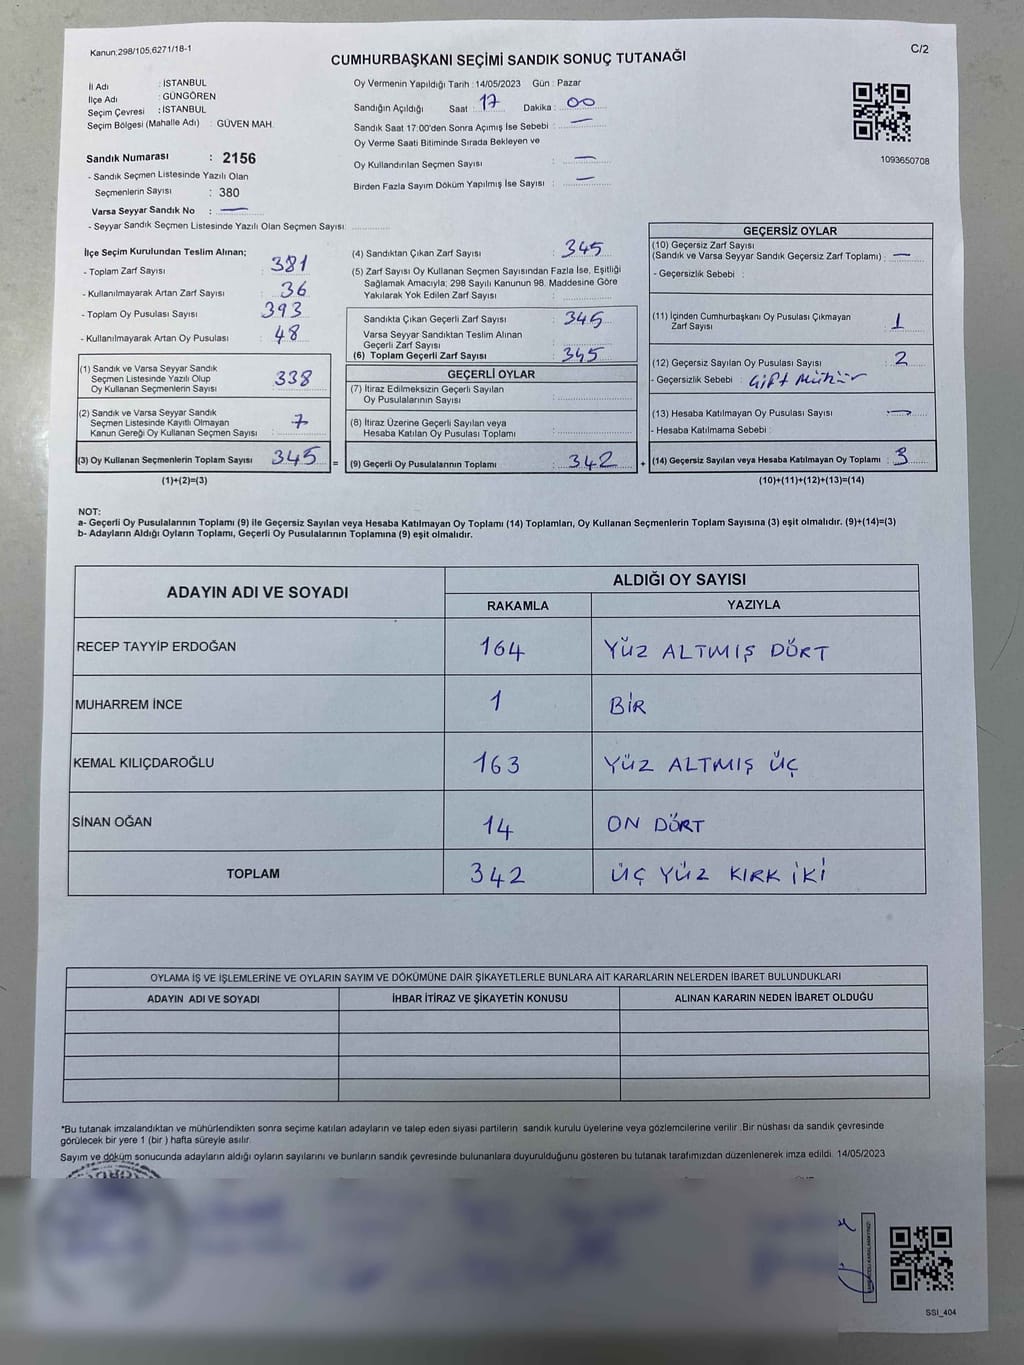 Kanun.298/105,6271/18-1
C/2
CUMHURBAŞKANI SEÇİMİ SANDIK SONUÇ TUTANAĞI
İl Adı : İSTANBUL
İlçe Adı : GÜNGÖREN
Seçim Çevresi : İSTANBUL
Seçim Bölgesi (Mahalle Adı) : GÜVEN MAH.
Sandık Numarası : 2156
- Sandık Seçmen Listesinde Yazılı Olan
Seçmenlerin Sayısı : 380
Varsa Seyyar Sandık No : —
- Seyyar Sandık Seçmen Listesinde Yazılı Olan Seçmen Sayısı:
Oy Vermenin Yapıldığı Tarih : 14/05/2023 Gün : Pazar
Sandığın Açıldığı Saat : 17 Dakika : 00
Sandık Saat 17:00'den Sonra Açımış İse Sebebi : —
Oy Verme Saati Bitiminde Sırada Bekleyen ve
Oy Kullandırılan Seçmen Sayısı : —
Birden Fazla Sayım Döküm Yapılmış İse Sayısı : —
1093650708
İlçe Seçim Kurulundan Teslim Alınan;
- Toplam Zarf Sayısı : 381
- Kullanılmayarak Artan Zarf Sayısı : 36
- Toplam Oy Pusulası Sayısı : 393
- Kullanılmayarak Artan Oy Pusulası : 48
(1) Sandık ve Varsa Seyyar Sandık
Seçmen Listesinde Yazılı Olup
Oy Kullanan Seçmenlerin Sayısı : 338
(2) Sandık ve Varsa Seyyar Sandık
Seçmen Listesinde Kayıtlı Olmayan
Kanun Gereği Oy Kullanan Seçmen Sayısı : 7
(3) Oy Kullanan Seçmenlerin Toplam Sayısı : 345 =
(1)+(2)=(3)
(4) Sandıktan Çıkan Zarf Sayısı : 345
(5) Zarf Sayısı Oy Kullanan Seçmen Sayısından Fazla İse, Eşitliği
Sağlamak Amacıyla; 298 Sayılı Kanunun 98. Maddesine Göre
Yakılarak Yok Edilen Zarf Sayısı :
Sandıkta Çıkan Geçerli Zarf Sayısı : 345
Varsa Seyyar Sandıktan Teslim Alınan
Geçerli Zarf Sayısı :
(6) Toplam Geçerli Zarf Sayısı : 345
GEÇERLİ OYLAR
(7) İtiraz Edilmeksizin Geçerli Sayılan
Oy Pusulalarının Sayısı :
(8) İtiraz Üzerine Geçerli Sayılan veya
Hesaba Katılan Oy Pusulası Toplamı :
(9) Geçerli Oy Pusulalarının Toplamı : 342 +
GEÇERSİZ OYLAR
(10) Geçersiz Zarf Sayısı
(Sandık ve Varsa Seyyar Sandık Geçersiz Zarf Toplamı) : —
- Geçersizlik Sebebi :
(11) İçinden Cumhurbaşkanı Oy Pusulası Çıkmayan
Zarf Sayısı : 1
(12) Geçersiz Sayılan Oy Pusulası Sayısı : 2
- Geçersizlik Sebebi : Çift Mühür
(13) Hesaba Katılmayan Oy Pusulası Sayısı : —
- Hesaba Katılmama Sebebi :
(14) Geçersiz Sayılan veya Hesaba Katılmayan Oy Toplamı : 3
(10)+(11)+(12)+(13)=(14)
NOT:
a- Geçerli Oy Pusulalarının Toplamı (9) ile Geçersiz Sayılan veya Hesaba Katılmayan Oy Toplamı (14) Toplamları, Oy Kullanan Seçmenlerin Toplam Sayısına (3) eşit olmalıdır. (9)+(14)=(3)
b- Adayların Aldığı Oyların Toplamı, Geçerli Oy Pusulalarının Toplamına (9) eşit olmalıdır.
ADAYIN ADI VE SOYADI
ALDIĞI OY SAYISI
RAKAMLA YAZIYLA
RECEP TAYYİP ERDOĞAN 164 YÜZ ALTMIŞ DÖRT
MUHARREM İNCE 1 BİR
KEMAL KILIÇDAROĞLU 163 YÜZ ALTMIŞ ÜÇ
SİNAN OĞAN 14 ON DÖRT
TOPLAM 342 ÜÇ YÜZ KIRK İKİ
OYLAMA İŞ VE İŞLEMLERİNE VE OYLARIN SAYIM VE DÖKÜMÜNE DAİR ŞİKAYETLERLE BUNLARA AİT KARARLARIN NELERDEN İBARET BULUNDUKLARI
ADAYIN ADI VE SOYADI İHBAR İTİRAZ VE ŞİKAYETİN KONUSU ALINAN KARARIN NEDEN İBARET OLDUĞU
*Bu tutanak imzalandıktan ve mühürlendikten sonra seçime katılan adayların ve talep eden siyasi partilerin sandık kurulu üyelerine veya gözlemcilerine verilir. Bir nüshası da sandık çevresinde
görülecek bir yere 1 (bir ) hafta süreyle asılır.
Sayım ve döküm sonucunda adayların aldığı oyların sayılarını ve bunların sandık çevresinde bulunanlara duyurulduğunu gösteren bu tutanak tarafımızdan düzenlenerek imza edildi. 14/05/2023
SSI_404